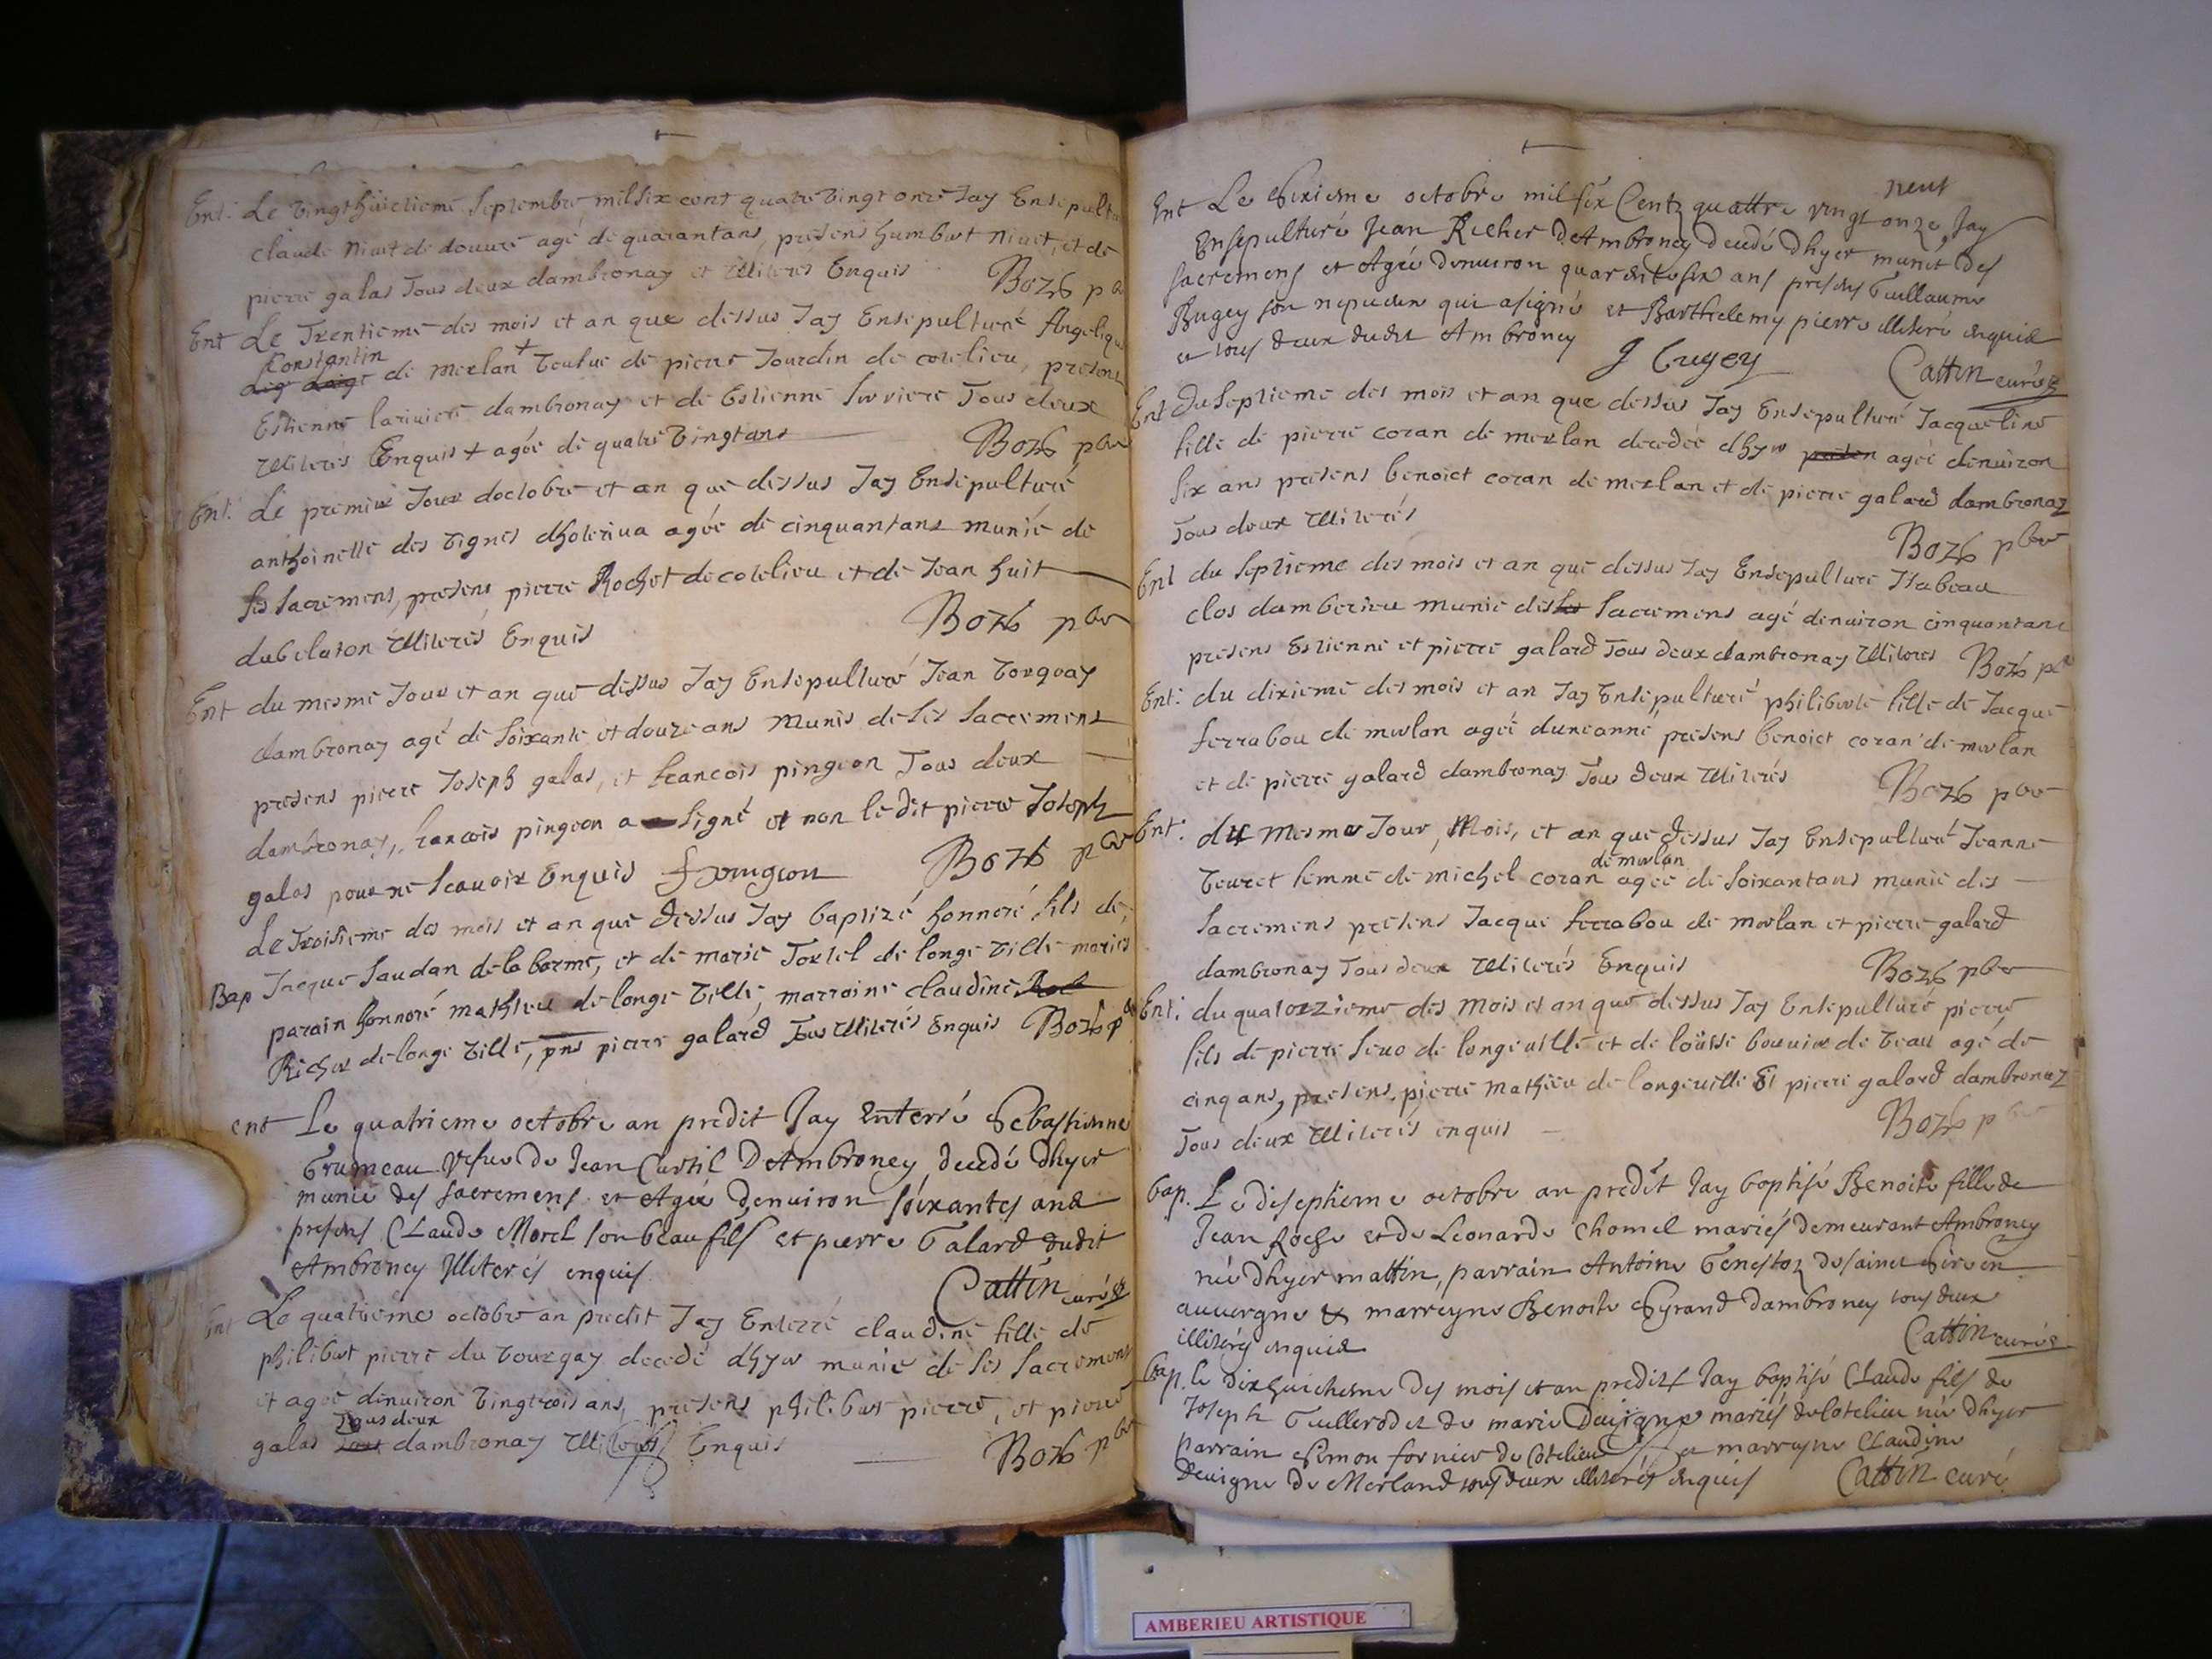 Ent: Le vingthuictieme septembre mil six cent quatre vingt onze Jay Ensepultu
claude nivet de douvre agé de quarantans, presens humbert nivet, et de
pierre galas Tous deux dambronay et Illiteres Enquis Bozo pbr
Ent Le Trentieme des mois et an que dessus Jay Ensepulturé Angelique
Constantin
de merlan + veufue de pierre Jourdin de cotelieu, presens
Estienne lariviere dambronay et de Estienne Tous deux
Illiteres Enquis + agée de quatre vingtans Bozo pbr
Ent: Le premier Jour doctobre et an que dessus Jay Ensepulturé
anthoinette des vignes dholeriva agée de cinquantans munie de
ses sacremens, presens pierre Rochet de cotelieu et de Jean huit
Illiterés Enquis Bozo pbr
Ent du mesme Jour et an que dessus Jay Ensepulturé Jean
dambronay agé de soixante et douze ans munis de ses sacremens
presens pierre Joseph galas, et francois pingeon Tous deux
dambronay, francois pingeon a signé et non le dit pierre Joseph
galas pour ne scavoir Enquis f pingeon Bozo pbr
Le Troisieme des mois et an que dessus Jay baptizé honnoré fils de
Bap Jacque saudan de la barme, et de marie de longe ville mariés
parain honnoré mathieu de longe ville, marraine claudine
Richer de longe ville, pns pierre galard Tous Illiterés Enquis Bozo p
ent Le quatrieme octobre an predit Jay Enterré Sebastienne
vefue de Jean Curtil DAmbroney, decedé Dhyer
munie des sacremens et Agée denuiron soixantes ans
presens Claude Morel son beaufils et pierre Galard dudit
Ambroney Illiterés enquis Cattin curé
Ent Le quatrieme octobre an predit Jay Enterré claudine fille de
philibert pierre du decedé dhyer munie de ses sacremens
et agée denuiron vingtrois ans, presens philibert pierre, et pierre
Tous deux
galas dambronay Illiterés Enquis Bozo pbr
neuf
Ent Le Sixiesme octobre mil six Centz quattre vingt onze Jay
Ensepulturé Jean Richer DAmbroney decedé Dhyer munit des
sacremens et Agée denuiron quarante six ans presens Guillaume
Bugey son nepueu qui asigné et Barthelemy pierre illiteré enquis
et tous deux dudit Ambroney J Bugey Cattin curé
Ent du septieme des mois et an que dessus Jay Ensepulturé Jacqueline
fille de pierre coran de merlan decedée dhyer agée denuiron
six ans presens benoict coran de merlan et de pierre galard dambronay
Tous deux Illiterés Bozo pbr
Ent du septieme des mois et an que dessus Jay Ensepulturé Isabeau
clos damberieu munie des sacremens agé denuiron cinquantans
presens Estienne et pierre galard Tous deux dambronay Illiteres Bozo pbr
Ent: du dixieme des mois et an Jay Ensepulturé philiberte fille de Jacque
ferrabou de merlan agée duneanné presens benoict coran de merlan
et de pierre galard dambronay Tous deux Illiterés Bozo pbr
Ent: du mesme Jour, Mois, et an que dessus Jay Ensepulturé Jeanne
de merlan
Teuret femme de michel coran agée de soixantans munie des
sacremens presens Jacque ferrabou de merlan et pierre galard
dambronay Tous deux Illiterés Enquis Bozo pbr
Ent: du quatorzieme des mois et an que dessus Jay Ensepulturé pierre
fils de pierre de longeville et de agé de
cinq ans, presens, pierre mathieu de longeville Et pierre galard dambronay
Tous deux Illiterés enquis Bozo pbr
bap. Le disephieme octobre an predit Jay baptisé Benoite fille de
Jean Roche et de Leonarde Chomel mariés demeurant Ambroney
née dhyer mattin, parrain Antoine de sainct en
auvergne & marreyne Benoite dambroney tous deux
illiterés enquis Cattin curé
bap. le dixhuictiesme des mois et an predits Jay baptisé Claude fils de
Joseph et de marie Devigne mariés de Cotelieu né dhyer
parrain Simon fornier de Cotelieu et marreyne Claudine
devigne de Merland tous deux illiterés enquis Cattin curé
AMBERIEU ARTISTIQUE